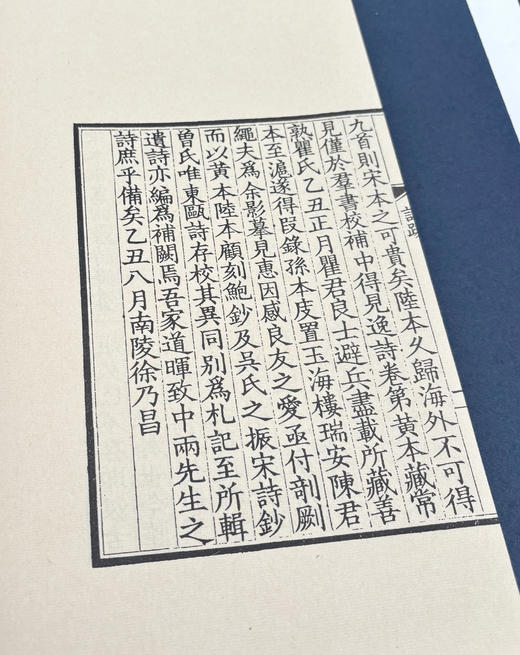 詩跋
九首則宋本之可貴矣陸本久歸海外不可得
見僅於羣書校補中得見逸詩卷第黃本藏常
孰瞿氏乙丑正月瞿君良士避兵盡載所藏善
本至滬遂得叚錄孫本庋置玉海樓瑞安陳君
繩夫爲余影摹見惠因感良友之愛亟付剞劂
而以黃本陸本顧刻鮑鈔及吳氏之振宋詩鈔
曾氏唯東甌詩存校其異同別爲札記至所輯
遺詩亦編爲補闕焉吾家道暉致中兩先生之
詩庶乎備矣乙丑八月南陵徐乃昌